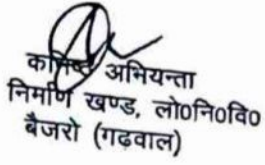 कनिष्ठ अभियन्ता
निर्माण खण्ड, लो०नि०वि०
बैजरो (गढ़वाल)